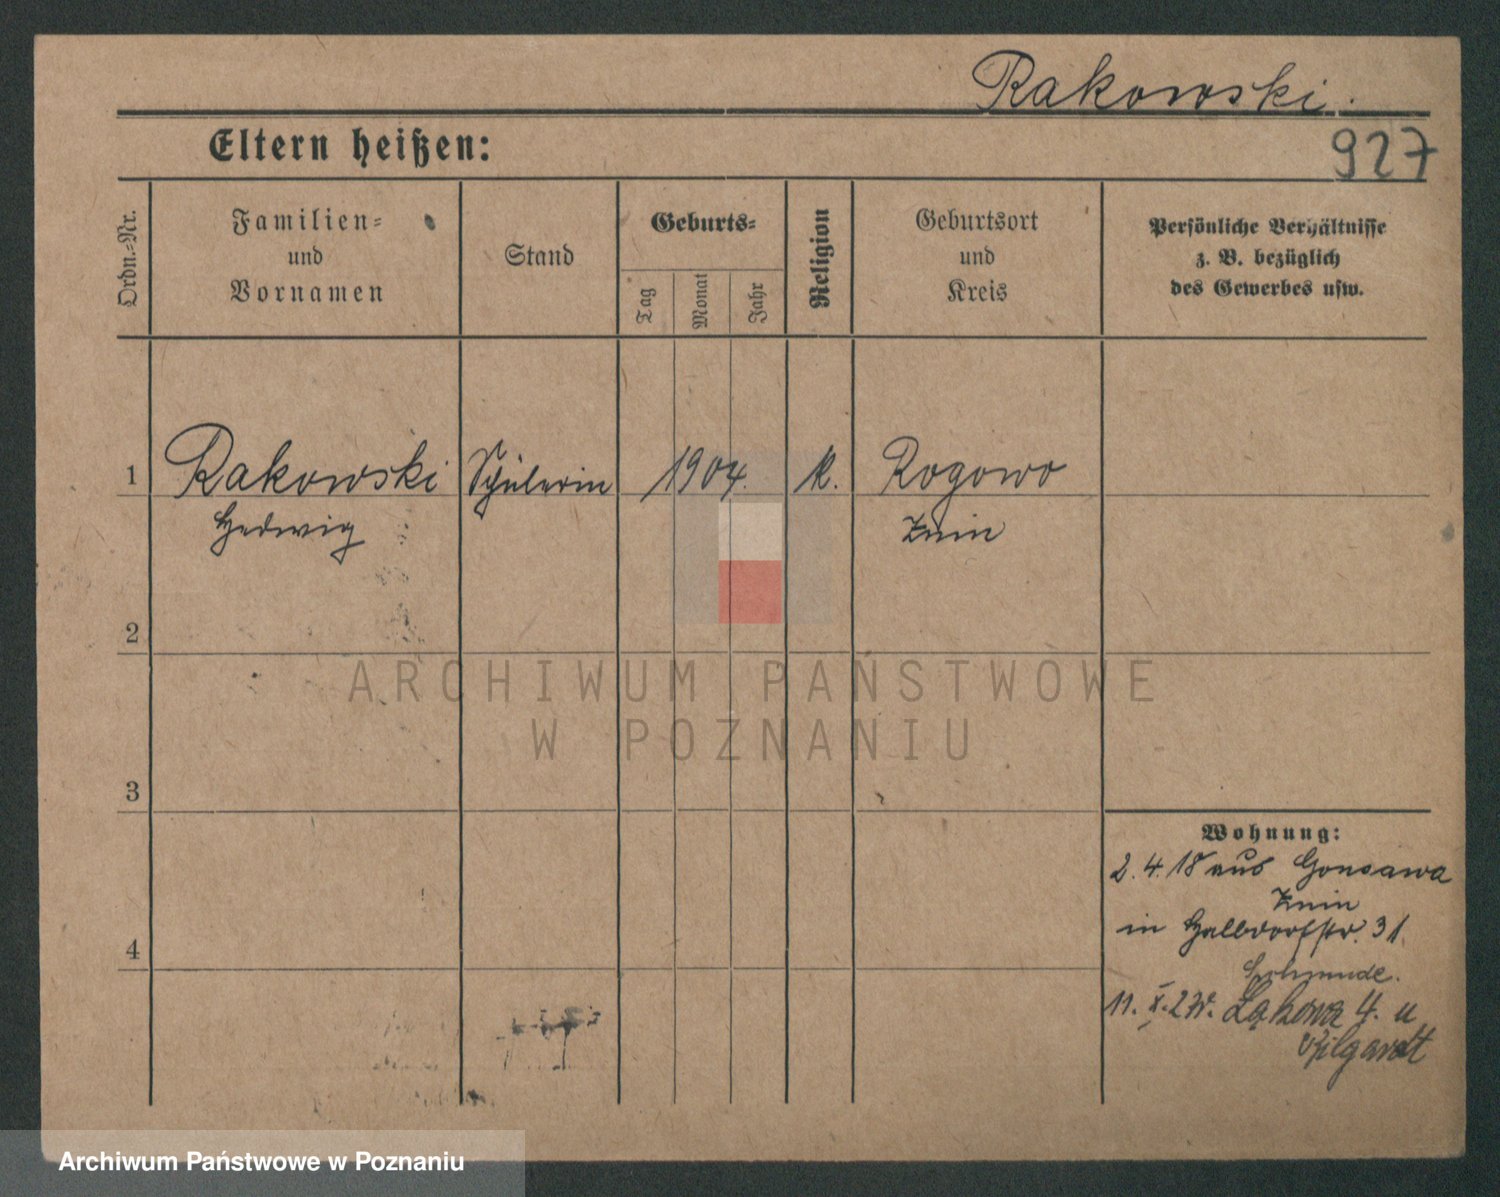 Rakowski.
927
Eltern heißen:
Ordn.=Nr.
Familien=
und
Vornamen
Stand
Geburts=
Tag
Monat
Jahr
Religion
Geburtsort
und
Kreis
Persönliche Verhältnisse
z. B. bezüglich
des Gewerbes usw.
1 Rakowski Schülerin 1904. k. Rogowo
Hedwig Znin
2
3
4
Wohnung:
2. 4. 18 aus Gonsawa
Znin
in Halbdorfstr. 31
11. X. Łąkowa 4. u
ARCHIWUM PAŃSTWOWE
W POZNANIU
Archiwum Państwowe w Poznaniu